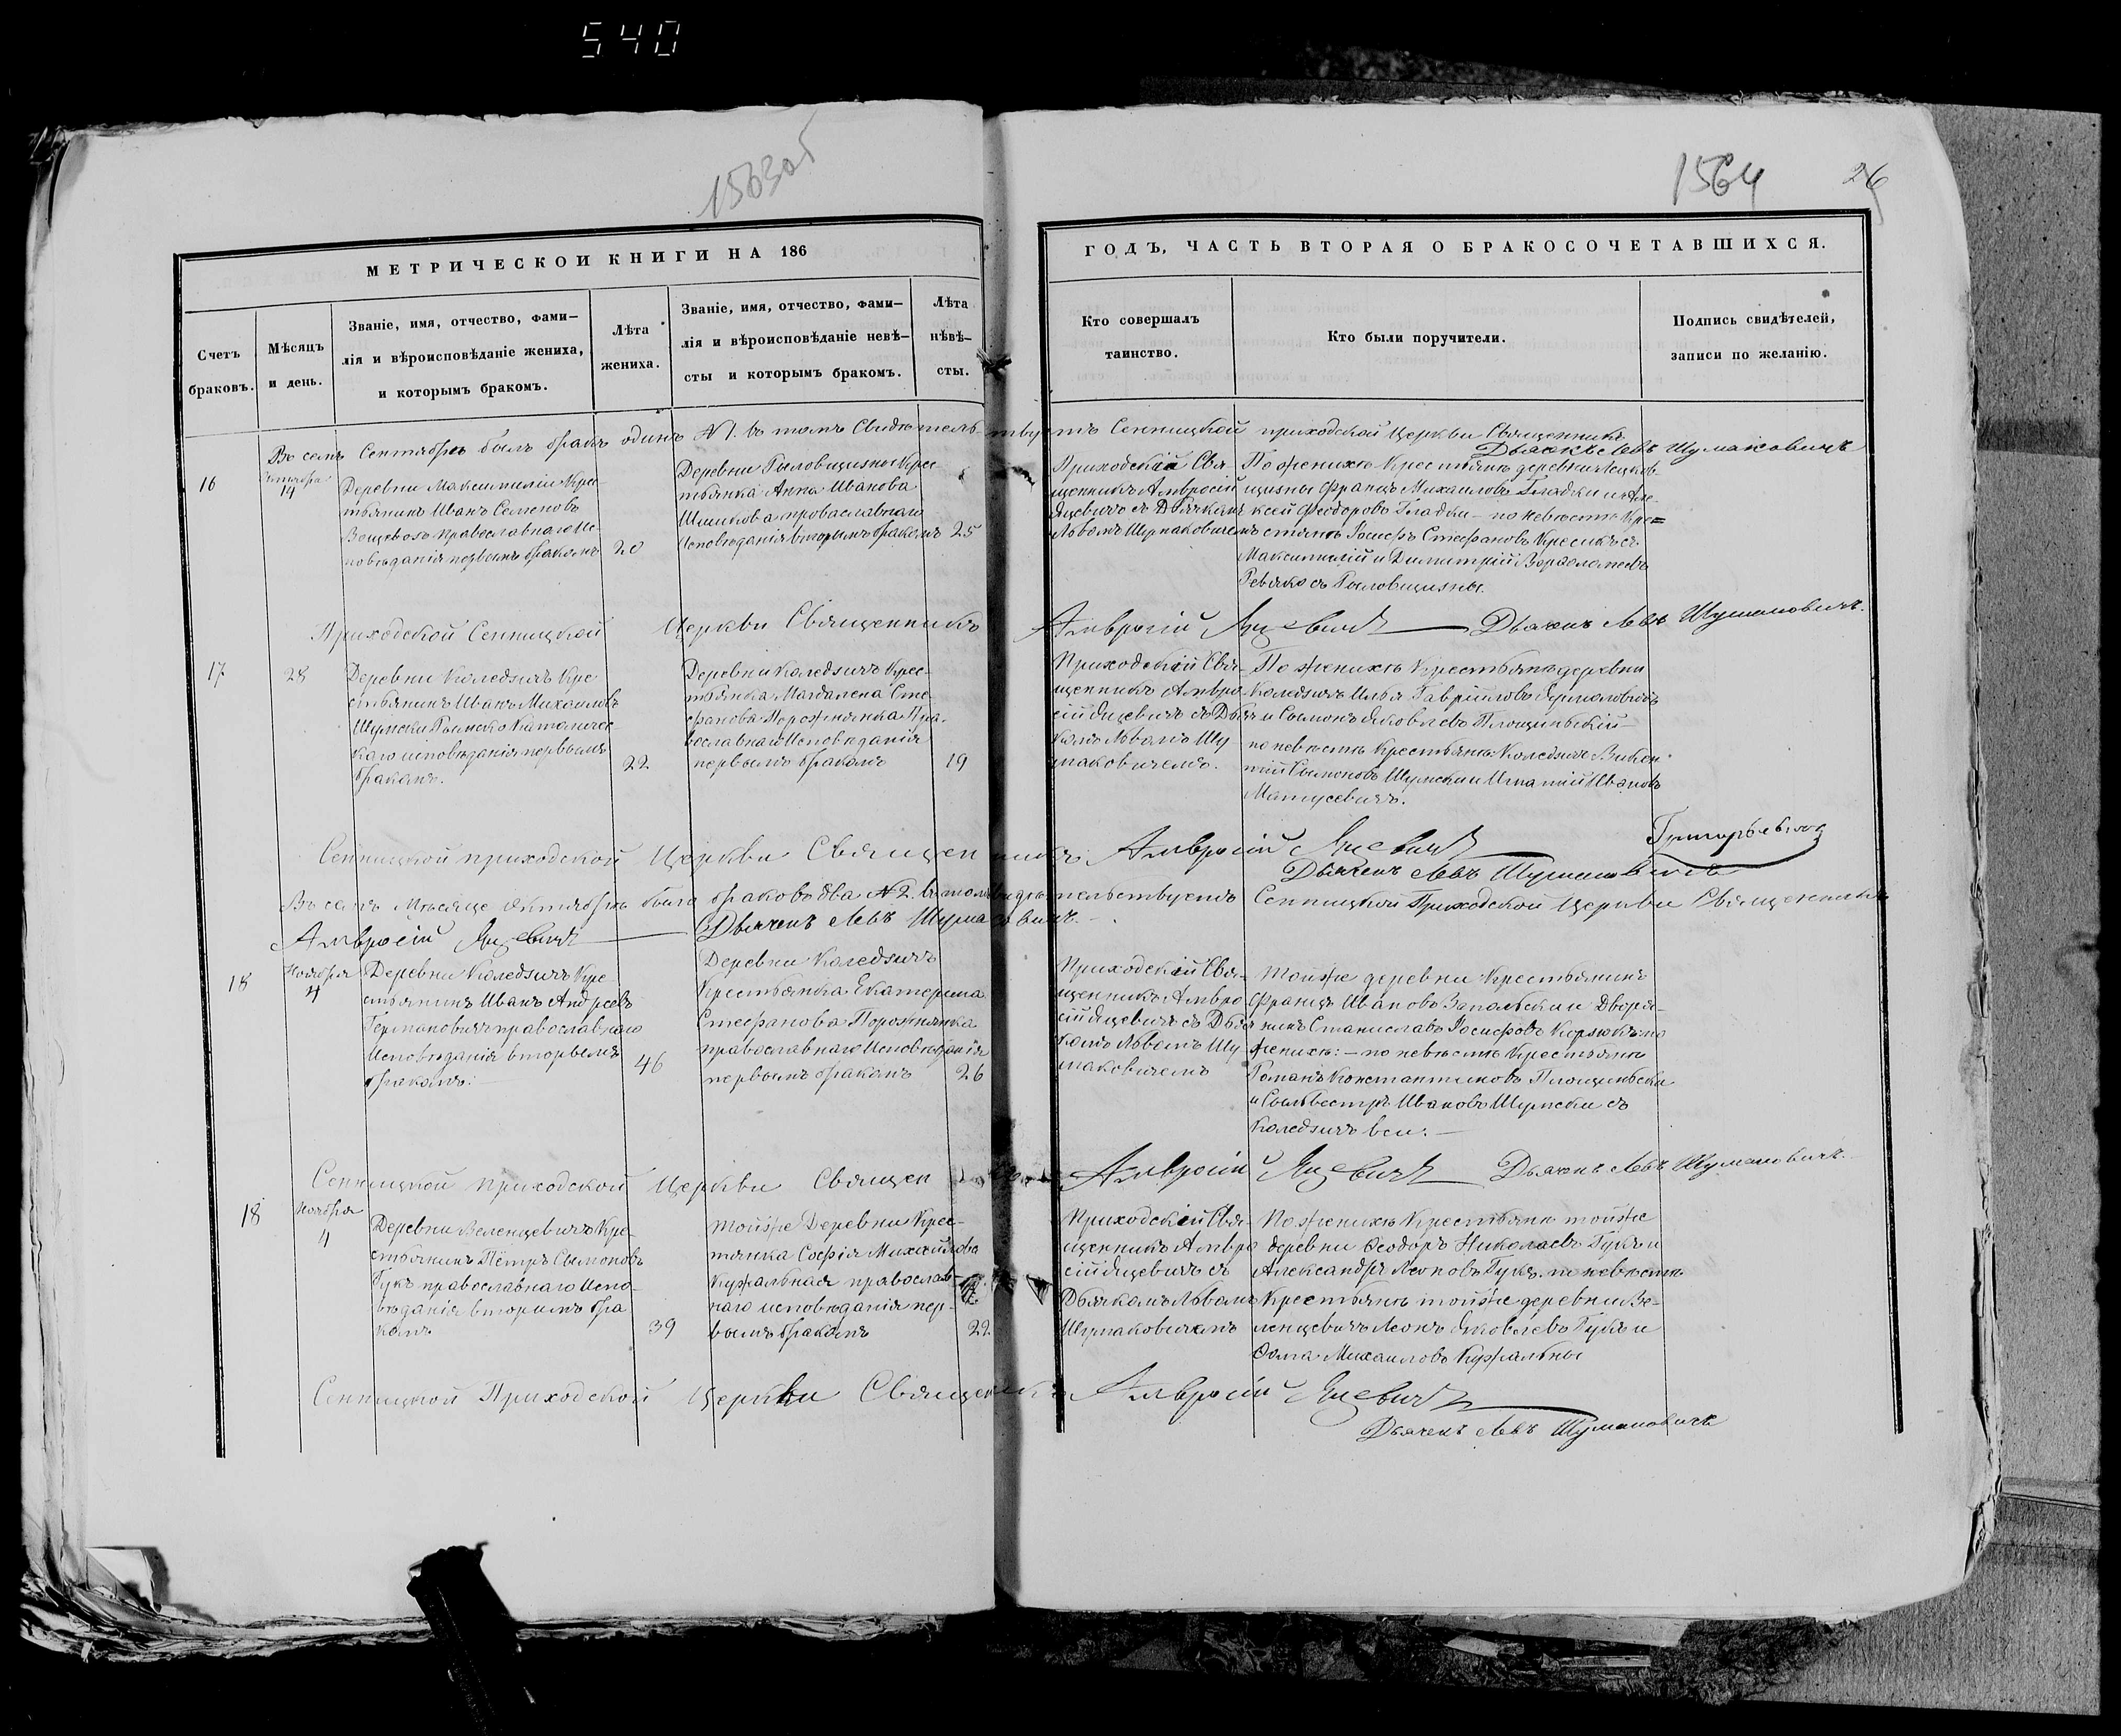 540
1563об
1564
26
МЕТРИЧЕСКОИ КНИГИ НА 186
Счетъ браковъ.
Мѣсяцъ и день.
Званіе, имя, отчество, фами-
лія и вѣроисповѣданіе жениха,
и которымъ бракомъ.
Лѣта жениха.
Званіе, имя, отчество, фами-
лія и вѣроисповѣданіе невѣ-
сты и которымъ бракомъ.
Лѣта нѣвѣ-
сты.
ГОДЪ, ЧАСТЬ ВТОРАЯ О БРАКОСОЧЕТАВШИХСЯ.
Кто совершалъ
таинство.
Кто были поручители.
Подпись свидѣтелей,
записи по желанію.
Въ семъ Сентябрѣ былъ бракъ одинъ №1. въ томъ Свидѣтельствуетъ Сенницкой приходской Церкви Священникъ
Дьячекъ Левъ Шумаковичъ
16
Октября
14
Деревни Максимиліи Кре-
стьянинъ Иванъ Семеновъ
православнаго Ис-
повѣданія первымъ бракомъ
20
Деревни Рыловщизны Крес-
тьянка Анна Иванова
православнаго
Исповѣданія вторымъ бракомъ
25
Приходскій Свя-
щенникъ Амвросій
Яцевичъ съ Дьячкомъ
Львомъ Шумаковичемъ
По женихѣ Крестьянѣ деревни
Францъ Михаиловъ Гладки и Але-
ксей Феодоровъ Гладки — по невѣстѣ Кре=
стьянѣ Іосифъ Стефановъ съ
Максимилій и Димитрій Варфоломеевъ
Ревяко съ Рыловщизны.
Приходской Сенницкой Церкви Священникъ Амвросій Яцевичъ Дьячекъ Левъ Шумаковичъ.
17
28
Деревни Коледзичъ Кре
стьянинъ Иванъ Михаиловъ
Шумски Римско Католичес-
каго исповѣданія первымъ
бракомъ.
22
Деревни Коледзичъ Крес-
тьянка Магдалена Сте-
фанова Порожнянка Пра-
вославнаго Исповѣданія
первымъ бракомъ
19
Приходскій Свя-
щенникъ Амвро
сій Яцевичъ съ Дья
комъ Львомъ Шу-
маковичемъ.
По женихѣ Крестьянѣ деревни
Коледзичъ Илья Гавриловъ Ярмоловичъ
и Сымонъ Яковлевъ Площинскій —
по невѣстѣ Крестьянѣ Коледзичъ Викен-
тій Сымоновъ Шумски и Игнатій Ивановъ
Матусевичъ.
Сенницкой приходской Церкви Священникъ Амвросій Яцевичъ
Дьячекъ Левъ Шумаковичъ
Въ семъ Мѣсяце Октябрѣ было браковъ два №2. въ томъ свидѣтельствуетъ Сенницкой Приходской Церкви Священникъ
Амвросій Яцевичъ Дьячекъ Левъ Шумаковичъ.
18
Ноября
4
Деревни Коледзичъ Кре-
стьянинъ Иванъ Андреевъ
Германовичъ православнаго
Исповѣданія вторымъ
бракомъ: —
46
Деревни Коледзичъ
Крестьянка Екатерина
Стефанова Порожнянка
православнаго Исповѣданія
первымъ бракомъ
26
Приходскій Свя-
щенникъ Амвро
сій Яцевичъ съ Дья
комъ Львомъ Шу-
маковичемъ
тойже деревни Крестьянинъ
Францъ Ивановъ Запольски и Дворя-
нинъ Станиславъ Іосифовъ по
женихѣ: — по невѣстѣ Крестьяне
Романъ Константиновъ Площински
и Сыльвестръ Ивановъ Шумски съ
Коледзичъ вси: —
Сенницкой приходской Церкви Священникъ Амвросій Яцевичъ Дьячекъ Левъ Шумаковичъ.
18
Ноября
4
Деревни Веленцевичъ Кре-
стьянинъ Пётръ Сымоновъ
Гукъ православнаго Испо-
вѣданія вторымъ бра
комъ
39
тойже Деревни Крес-
тянка Софія Михайлова
Кужальная православ-
наго исповѣданія пер-
вымъ бракомъ
22
Приходскій Свя-
щенникъ Амвро
сій Яцевичъ съ
Дьякомъ Львомъ
Шумаковичемъ
По женихѣ Крестьянѣ тойже
деревни Феодоръ Николаевъ Гукъ и
Александръ Леоновъ Гукъ. по невѣстѣ
Крестьянѣ тойже деревни Ве-
ленцевичъ Леонъ Яковлевъ Гукъ и
Фома Михаиловъ Кужальны
Сенницкой Приходской Церкви Священникъ Амвросій Яцевичъ
Дьячекъ Левъ Шумаковичъ